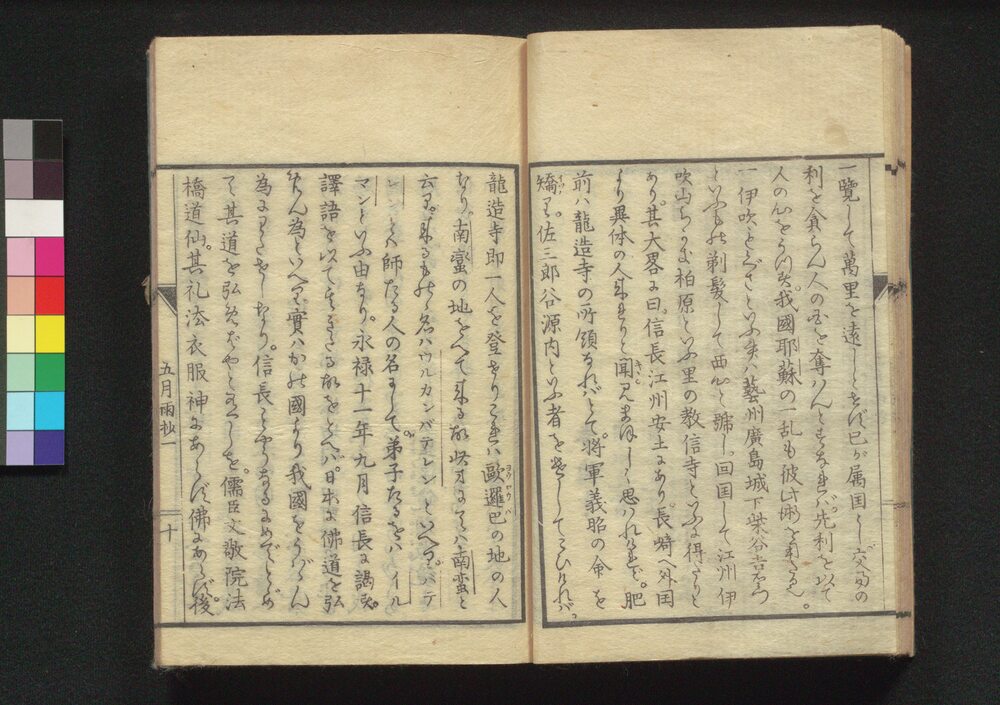 一覧して萬里を遠しとせず己が属国とし交易の
利を貪らん人の国を奪はんとするなれバ先利を以て
人の心をうバふ我國耶蘇の一乱も彼此術を
一伊吹といふ ハ藝州廣島城下 谷吉
といふもの剃髪して西心と號し回国して江州伊
吹山ちかき柏原といふ里の教信寺といふに得たりと
あり其大畧に曰信長江州安土にあり長崎へ外国
より異体の人来れりと聞 思ハれけれど肥
前ハ龍造寺の所領なれバとて将軍義昭の命を
矯り佐三郎谷源内といふ者を遣してこひけれバ
龍造寺即一人を登せりこれハ歐邏巴の地の人
なり南蛮の地をへて来る故此方にてハ南蛮と
云なり来るものゝ名ハウルカンバテレンといへりバテ
レンとハ師たる人の名にして弟子たるをハイル
マンといふ由なり永禄十一年九月信長に謁す
譯語を以て来る故をとへバ日本に佛道を弘
めん為といへど實ハかの國より我國をうばゝん
為にわたせしなり信長ことやうなるにめでとゞめ
て其道を弘めばやとせしを儒臣文敬院法
橋道仙其礼法衣服神にあらず佛にあらず後
五月雨抄一
十